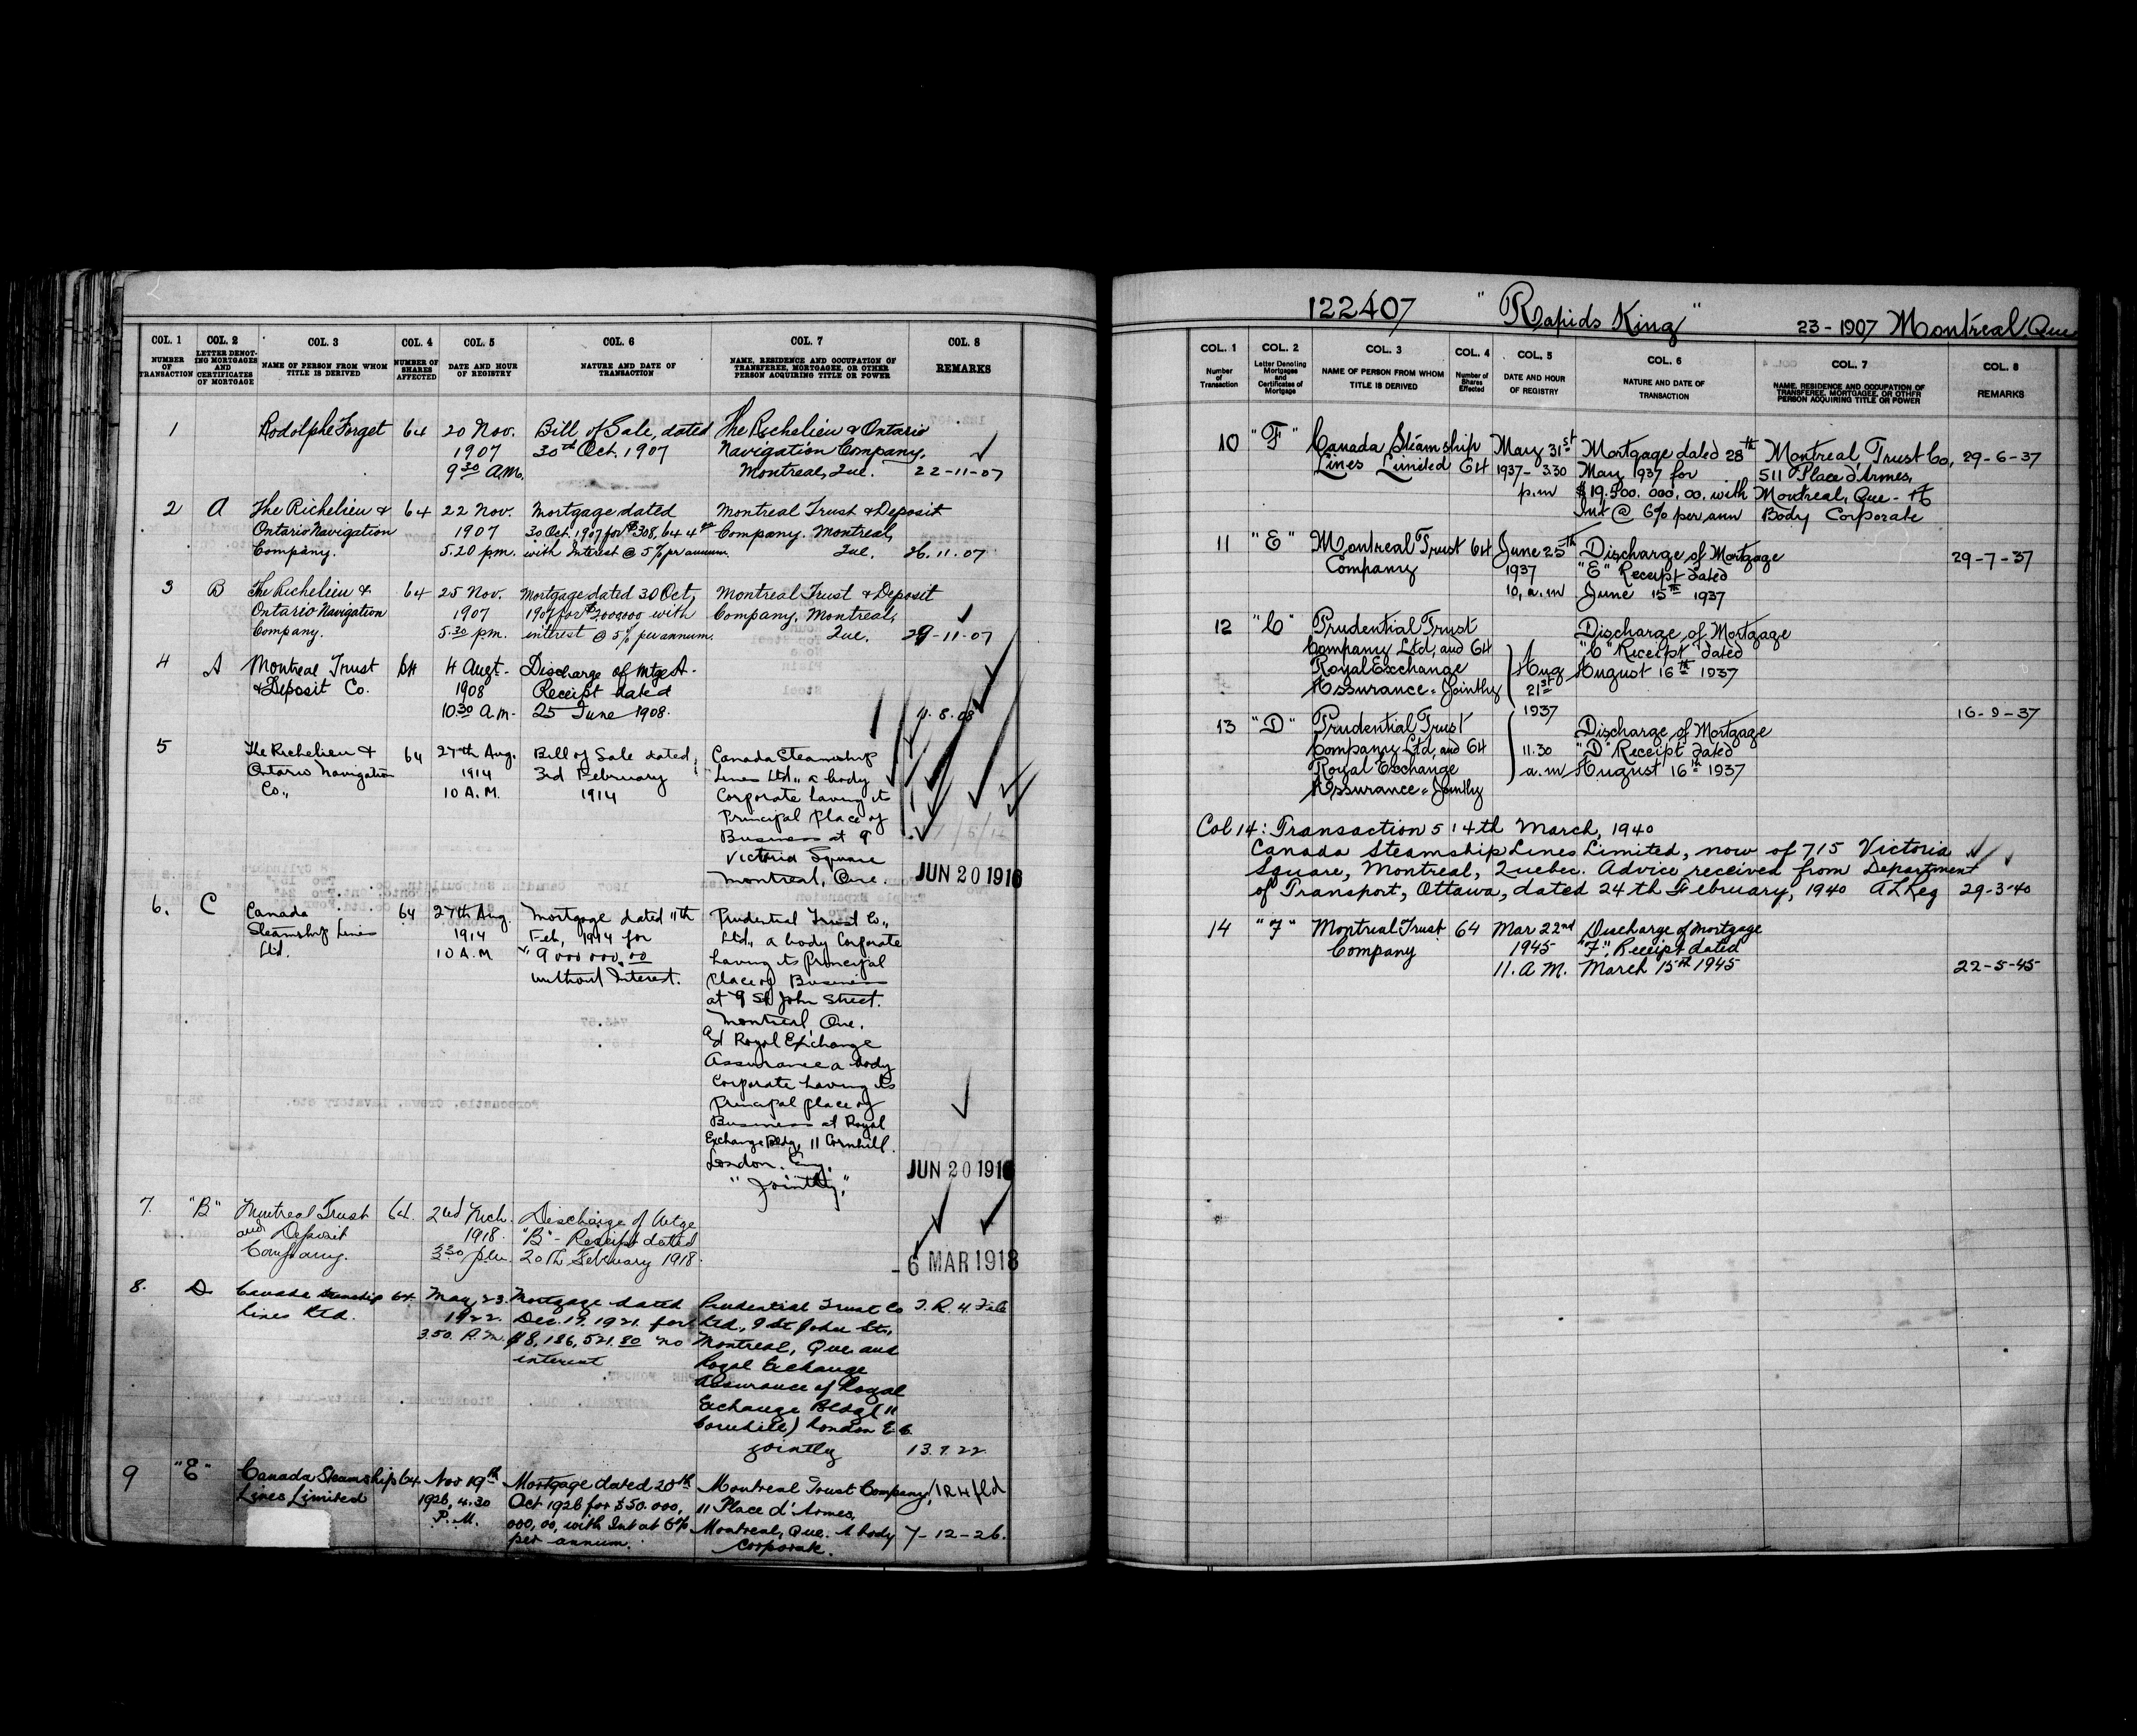 COL. 1 COL. 2 COL. 3 COL. 4 COL. 5 COL. 6 COL. 7 COL. 8
NUMBER OF TRANSACTION
LETTER DENOTING MORTGAGES AND CERTIFICATES OF MORTGAGE
NAME OF PERSON FROM WHOM TITLE IS DERIVED
NUMBER OF SHARES AFFECTED
DATE AND HOUR OF REGISTRY
NATURE AND DATE OF TRANSACTION
NAME, RESIDENCE AND OCCUPATION OF TRANSFEREE, MORTGAGEE, OR OTHER PERSON ACQUIRING TITLE OR POWER
REMARKS
1 Rodolphe Forget 64 20 Nov. Bill of Sale, dated The Richelieu & Ontario
1907 30th Oct. 1907 Navigation Company,
9 30 A.M. Montreal, Que. 22-11-07
2 A The Richelieu & 64 22 Nov. Mortgage dated Montreal Trust & Deposit
Ontario Navigation 1907 30 Oct. 1907 for $308,644 Company. Montreal,
Company. 5.20 pm. with Interest @ 5% pr annum. Que. 26.11.07
3 B The Richelieu & 64 25 Nov. Mortgage dated 30 Oct, Montreal Trust & Deposit
Ontario Navigation 1907 1907 for with Company, Montreal,
Company. 5.30 pm. interest @ 5% per annum. Que. 29-11-07
4 A Montreal Trust 64 4 Augt- Discharge of Mtge A-
& Deposit Co. 1908 Receipt dated
10 30 A.M- 25 June 1908. 4.8.08
5 The Richelieu & 64 27th Aug. Bill of Sale dated, Canada Steamship
Ontario Navigation 1914 3rd February Lines Ltd,, a body
Co,, 10 A.M. 1914 Corporate having its
Principal place of
Business at 9
Victoria Square
Montreal, Que. JUN 20 1916
6. C Canada 64 27th Aug. Mortgage dated 11th Prudential Trust Co,,
Steamship Lines 1914 Feb, 1914 for Ltd,, a body Corporate
Ltd. 10 A.M 9 000 000.00 having its Principal
without Interest. place of Business
at 9 St John Street.
Montreal, Que.
& Royal Exchange
Assurance a body
Corporate having its
principal place of
Business at Royal
Exchange Bldg, 11 Cornhill.
London. Eng.
"Jointly," JUN 20 1916
7. "B" Montreal Trust 64. 2nd Mch. Discharge of Mtge
and Deposit 1918. "B" - Receipt dated
Company. 3 30 p.m. 20th February 1918. - 6 MAR 1918
8. D Canada Steamship 64 May 23. Mortgage dated Prudential Trust Co
Lines Ltd. 1922. Dec. 19. 1921. for Ltd., 9 St John St.,
3.50. P.M. $8,186,521.80 no Montreal, Que and
interest Royal Exchange
Assurance of Royal
Exchange Bldg (11
Cornhill) London E.C.
jointly 13.7.22
9 "E" Canada Steamship 64 Nov 19th Mortgage dated 20th Montreal Trust Company,
Lines Limited 1926, 4.30 Oct 1926 for $50.000, 11 Place d'Armes,
P.M. 000,00, with Int at 6% Montreal, Que. A body 7-12-26.
per annum. Corporate.
122407 "Rapids King" 23-1907 Montreal, Que
COL. 1 COL. 2 COL. 3 COL. 4 COL. 5 COL. 6 COL. 7 COL. 8
Number of Transaction
Letter Denoting Mortgages and Certificates of Mortgage
NAME OF PERSON FROM WHOM TITLE IS DERIVED
Number of Shares Effected
DATE AND HOUR OF REGISTRY
NATURE AND DATE OF TRANSACTION
NAME, RESIDENCE AND OCCUPATION OF TRANSFEREE, MORTGAGEE, OR OTHER PERSON ACQUIRING TITLE OR POWER
REMARKS
10 "F" Canada Steamship May 31st Mortgage dated 28th Montreal Trust Co, 29-6-37
Lines Limited 64 1937- 3.30 May 1937 for 511 Place d'Armes,
p.m $19.500.000,00. with Montreal, Que - A
Int @ 6% per ann Body Corporate
11 "E" Montreal Trust 64 June 25th Discharge of Mortgage
Company 1937 "E" Receipt dated 29-7-37
10, a.m June 15th 1937
12 "C" Prudential Trust Discharge of Mortgage
Company Ltd, and 64 "C" Receipt dated
Royal Exchange Aug August 16th 1937
Assurance - Jointly 21st
1937 16-9-37
13 "D" Prudential Trust Discharge of Mortgage
Company Ltd, and 64 11.30 "D" Receipt dated
Royal Exchange a.m August 16th 1937
Assurance - Jointly
Col 14: Transaction 5: 4th March, 1940
Canada Steamship Lines Limited, now of 715 Victoria
Square, Montreal, Quebec. Advice received from Department
of Transport, Ottawa, dated 24th February, 1940 29-3-40
14 "F" Montreal Trust 64 Mar 22nd Discharge of mortgage
Company 1945 "F", Receipt dated
11. A.M. March 15th 1945 22-5-45